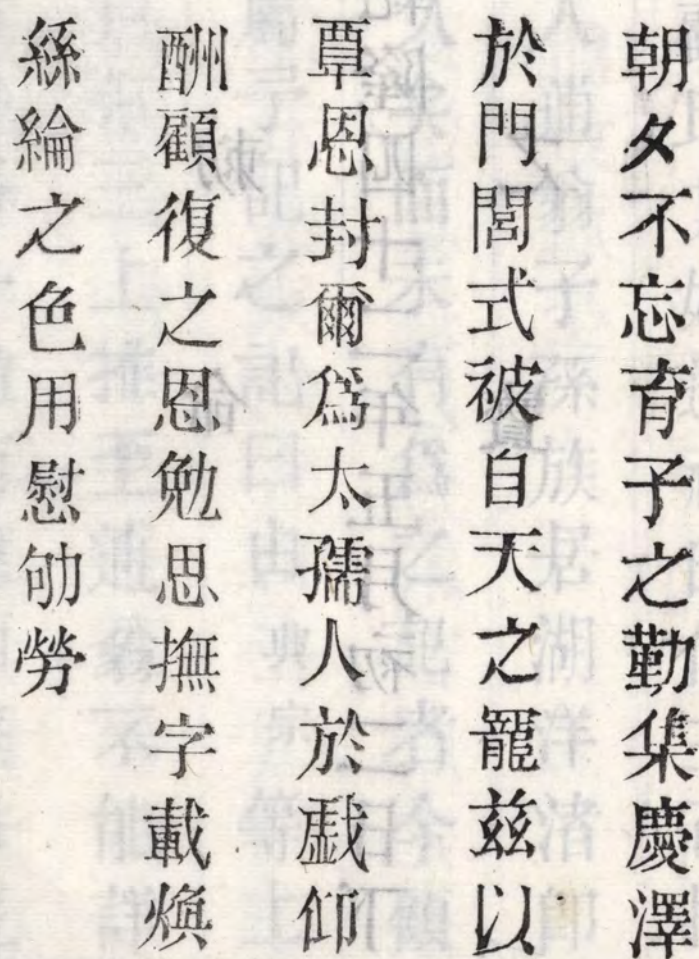 朝夕不忘育子之勤集慶澤
於門閭式被自天之寵玆以
覃恩封爾爲太孺人於戲仰
酬顧復之恩勉思撫字載煥
絲綸之色用慰劬勞